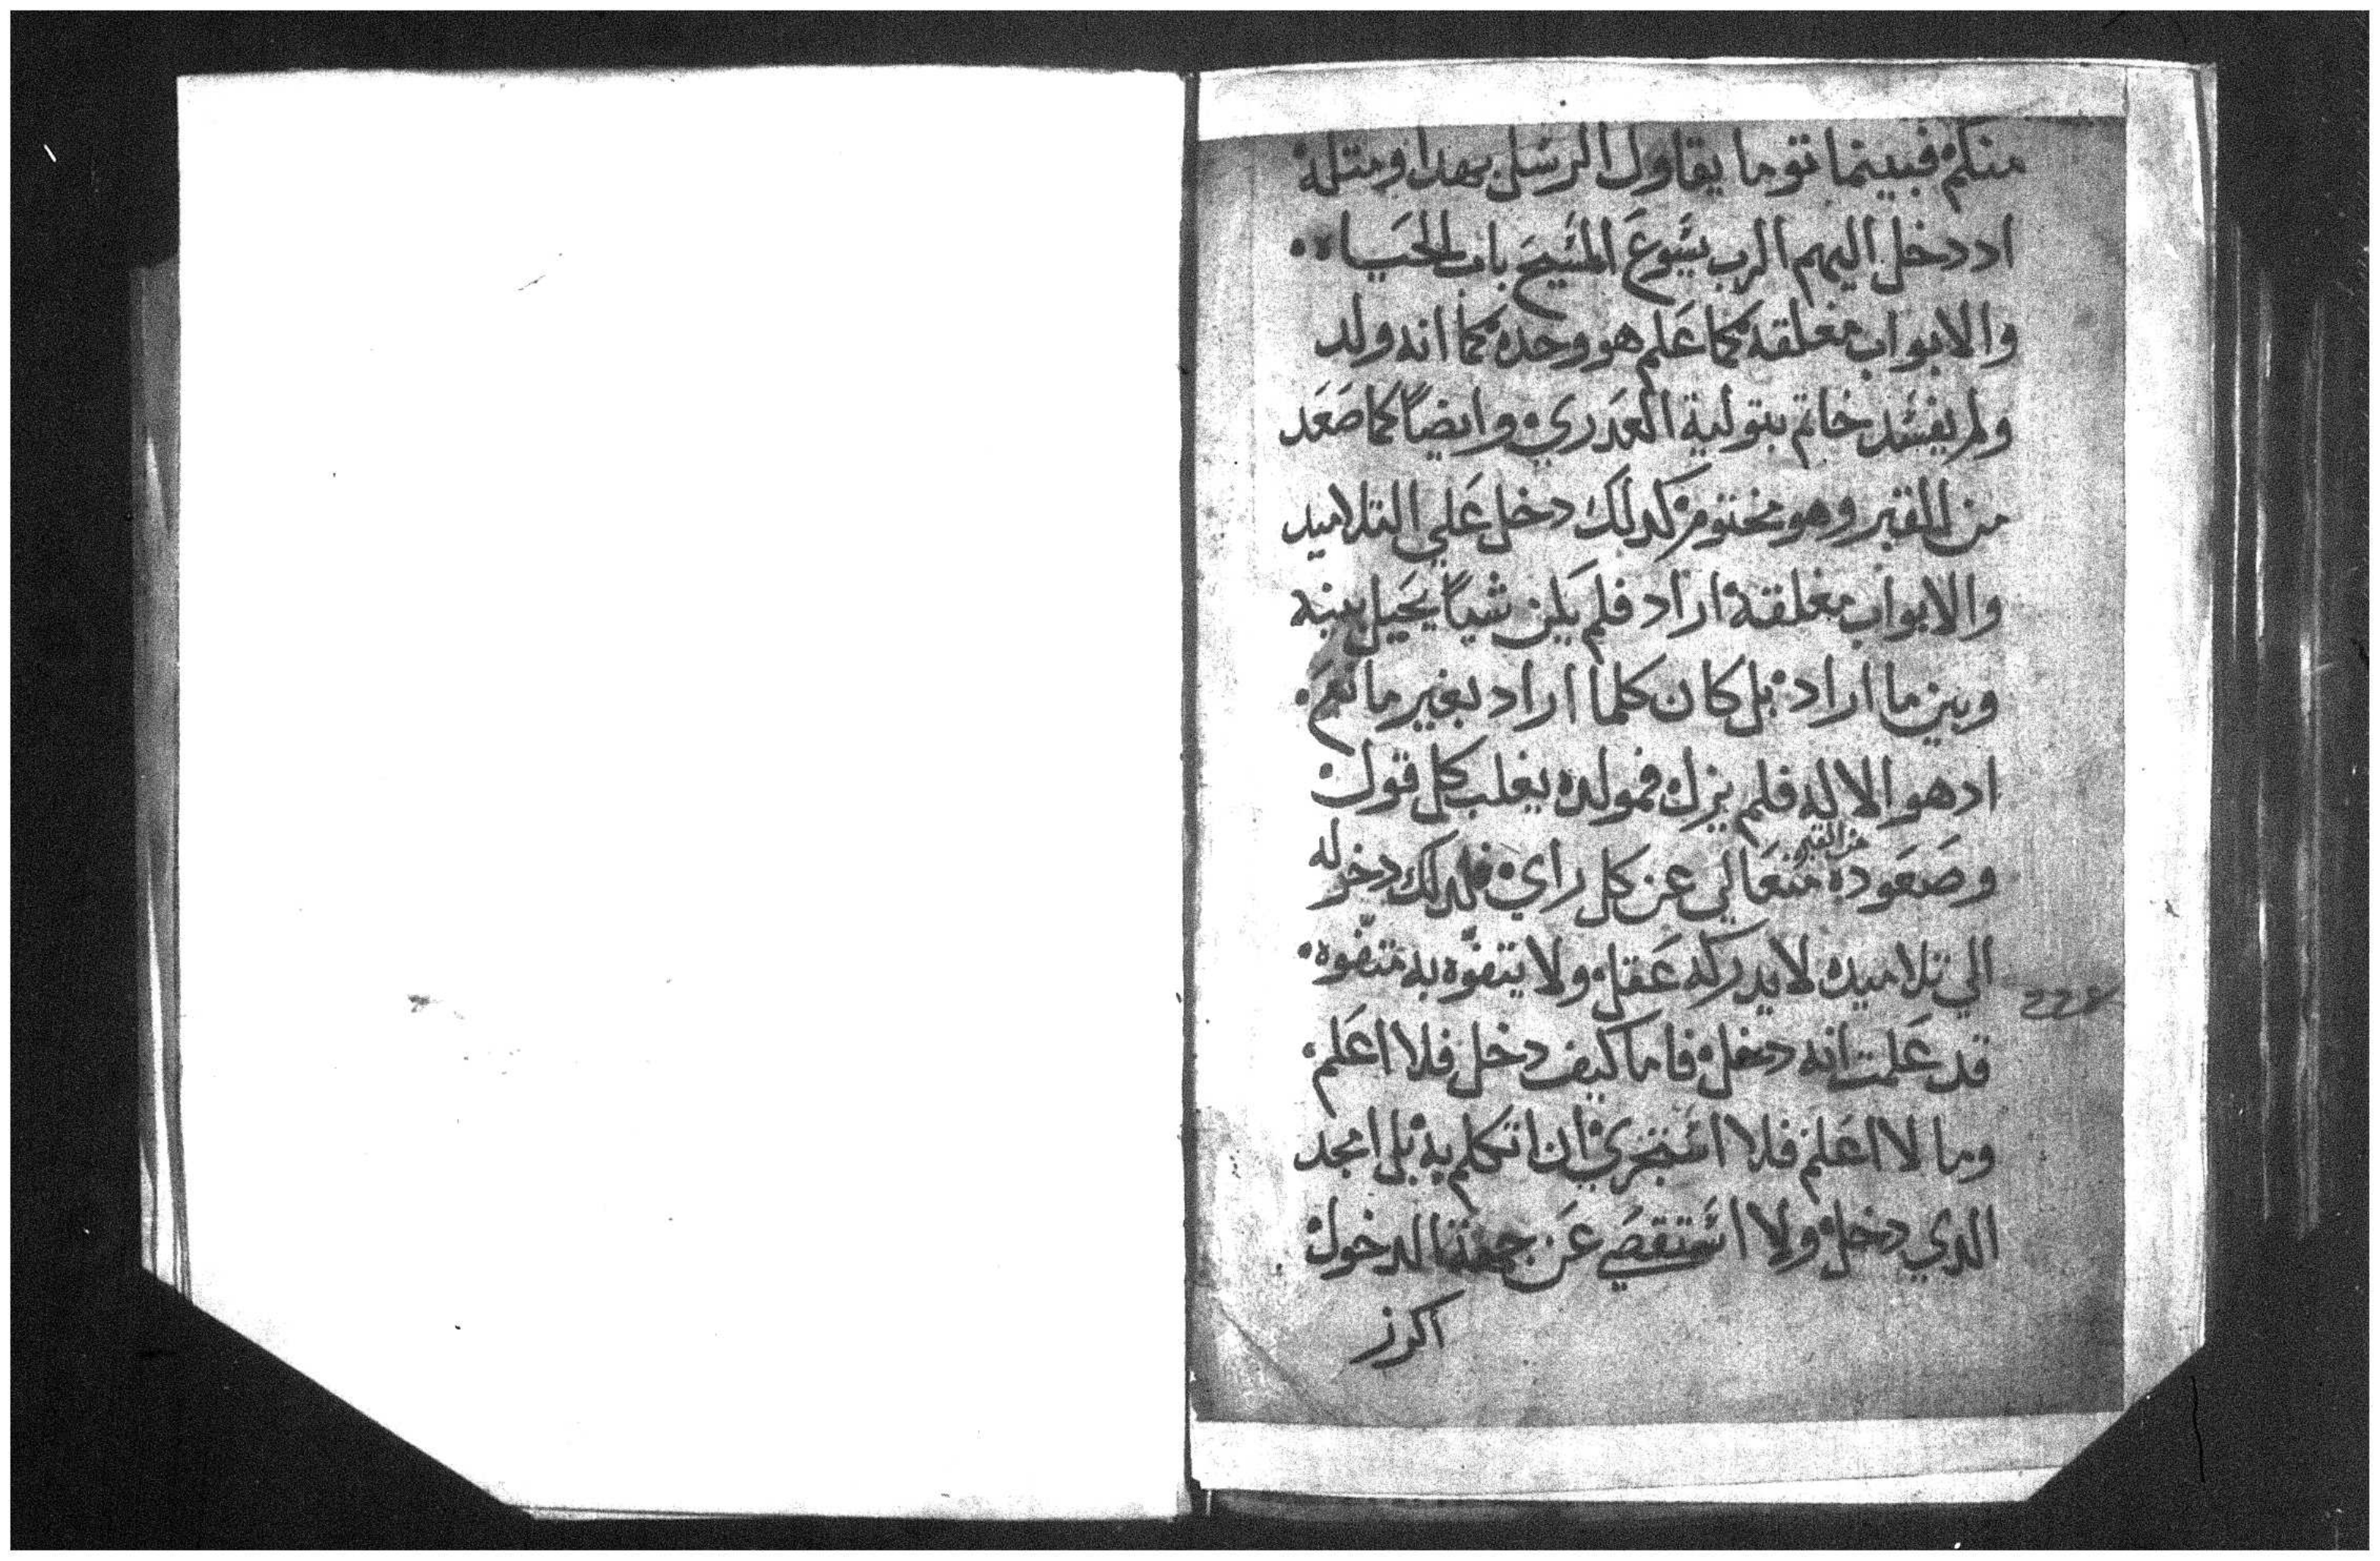 منكم فبينما توما يقاول الرسل بهدا ومتله
اد دخل اليهم الرب يسوع المسيح باب الحياه
والابواب مغلقه كما علم هو وحده كما انه ولد
ولم يفسد خاتم بتولية العدري وايضاً كما صعد
من القبر وهو مختوم كدلك دخل علي التلاميد
والابواب مغلقه اراد فلم يكن شياً يحيل بينه
وبين ما اراد بل كان كلما اراد بغير مانع
اد هو الاله فلم يزل فمولده يغلب كل قول
من القبر
وصعوده متعالي عن كل راي فلدلك دخوله
الي تلاميده لا يدركه عقل ولا يتفوّه به متفوّه
قد علمت انه دخل فاما كيف دخل فلا اعلم
وما لا اعلم فلا استجري ان اتكلم به بل امجد
الدي دخل ولا استقصي عن جهة الدخول
اكرز